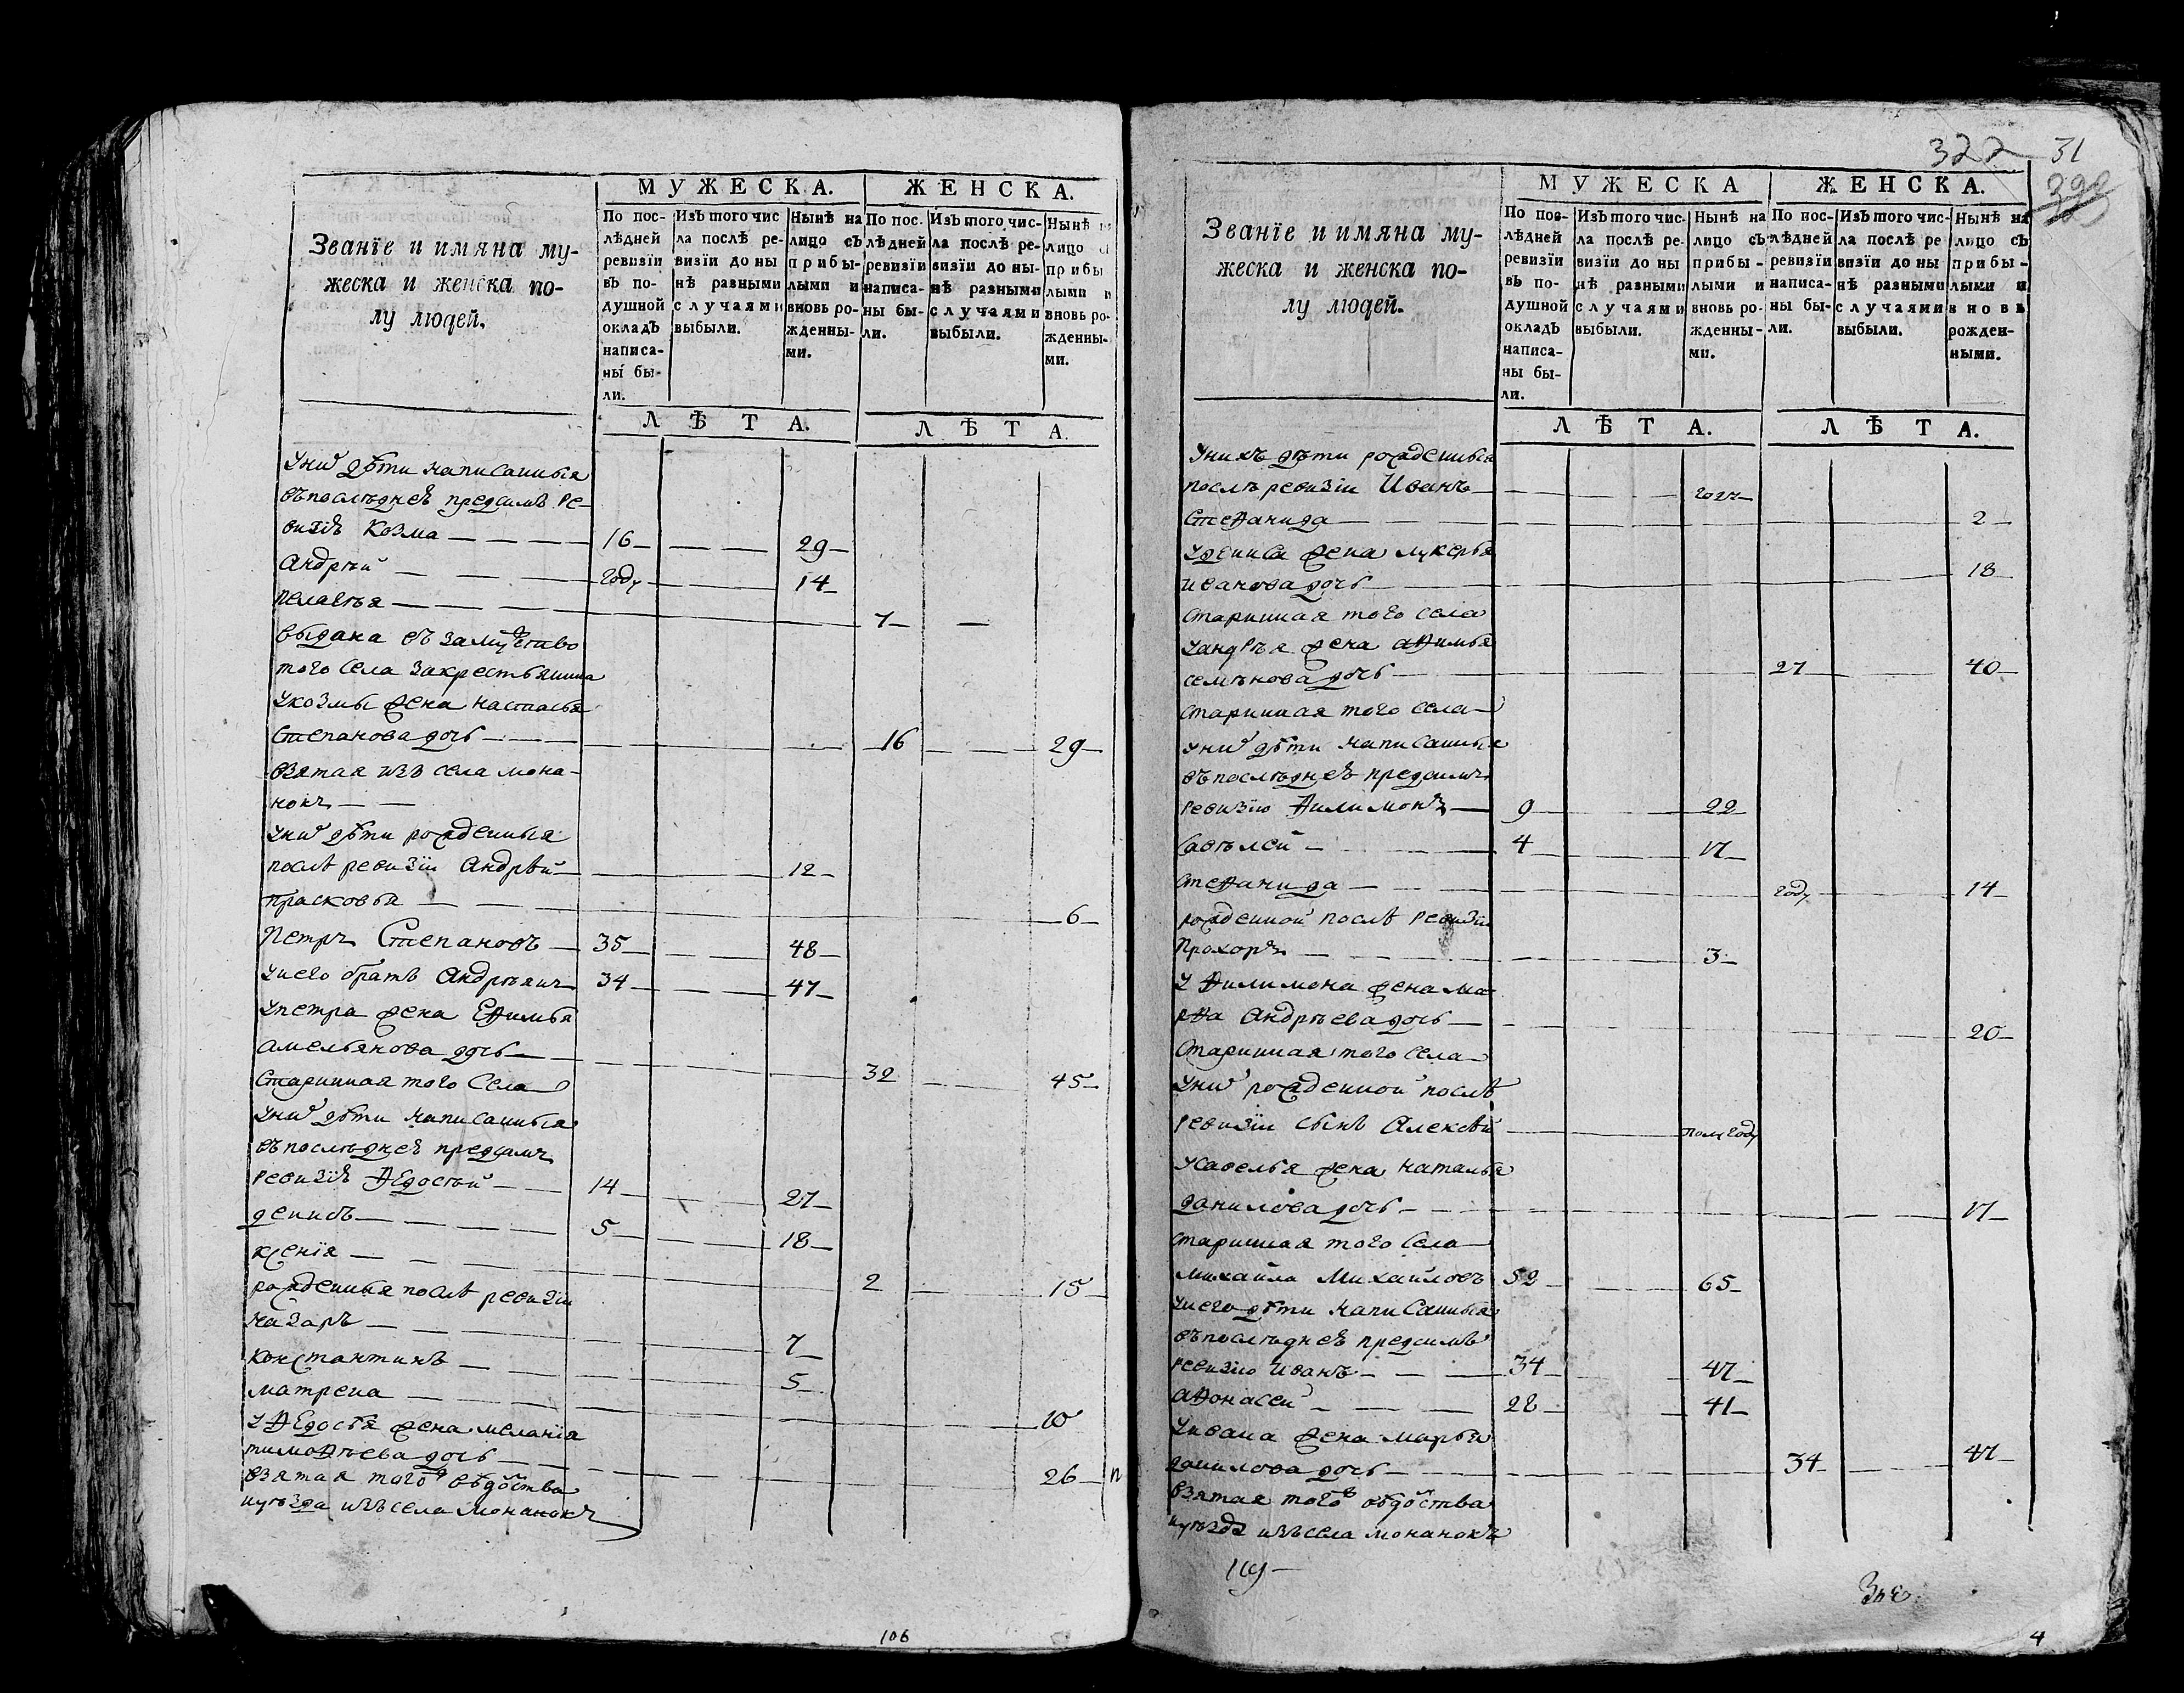 МУЖЕСКА. ЖЕНСКА.
Званїе и имяна му-
жеска и женска по-
лу людей.
По пос-
лѣдней
ревизїи
въ по-
душной
окладъ
написа-
ны бы-
ли.
Изъ того чис
ла послѣ ре-
визїи до ны
нѣ разными
случаями
выбыли.
Нынѣ на
лицо съ
прибы-
лыми и
вновь ро-
жденны-
ми.
По пос.
лѣдней
ревизїи
написа-
ны бы-
ли.
Изъ того чис-
ла послѣ ре-
визїи до ны-
нѣ разными
случаями
выбыли.
Нынѣ
лицо
прибы
лыми и
вновь ро-
жденны-
ми.
ЛѢТА. ЛѢТА.
У них дѣти написанныя
въ последнеѣ пред симъ ре-
визїѣ Козма 16 29
Андрѣй году 14
Пелагѣя 7
выдана въ замужство
того села за крестьянина
У козмы жена настасья
Степанова дочь 16 29
взятая изъ села мона-
нокъ
У них дѣти рожденныя
послѣ ревизїи Андрѣй 12
Прасковья 6
Петръ Степановъ 35 48
У него братъ Андрѣянъ 34 47
У петра жена Ефимья
Амельянова дочь 32 45
Старинная того Села
У них дѣти написанныя
въ последнеѣ пред симъ
ревизїѣ Федосѣй 14 27
денисъ 5 18
ксенїя 2 15
рожденныя послѣ ревизїи
Назаръ 7
Константинъ 5
матрена 10
У Федосѣя жена меланїя
тимофѣева дочь 26
взятая того въдомства
и уѣзда изъ села Монанокъ
106
322 31
МУЖЕСКА ЖЕНСКА.
Званїе и имяна му-
жеска и женска по-
лу людей.
По пос-
лѣдней
ревизїи
въ по-
душной
окладъ
написа-
ны бы-
ли.
Изъ того чис-
ла послѣ ре-
визїи до ны
нѣ разными
случаями
выбыли.
Нынѣ на
лицо съ
прибы-
лыми и
вновь ро-
жденны-
ми.
По пос-
лѣдней
ревизїи
написа-
ны бы-
ли.
Изъ того чис-
ла послѣ ре
визїи до ны-
нѣ разными
случаями
выбыли.
Нынѣ на
лицо съ
прибы-
лыми и
вновь
рожден-
ными.
ЛѢТА. ЛѢТА.
У нихъ дѣти рожденныя
послѣ ревизїи Иванъ годъ
Стефанида 2
У дениса жена лукерья
иванова дочь 18
старинная того села
У андрѣя жена афимья
семѣнова дочь 27 40
старинная того села
У них дѣти написанныя
въ последнеѣ пред симъ
ревизїю Филимонъ 9 22
Савѣлей 4 17
стефанида году 14
рожденной послѣ ревизїи
Прохоръ 3
У Филимона жена ма-
рфа Андрѣева дочь 20
Старинная того села
У них рожденной послѣ
ревизїи сынъ Алексѣй полугоду
У Савелья жена наталья
данилова дочь 17
старинная того Села
михайла Михайловъ 52 65
У него дѣти написанныя
въ последнеѣ пред симъ
ревизїю Иванъ 34 47
Афонасей 28 41
У ивана жена марья
данилова дочь 34 47
взятая того въдомства
и уѣзда изъ села монанокъ
4